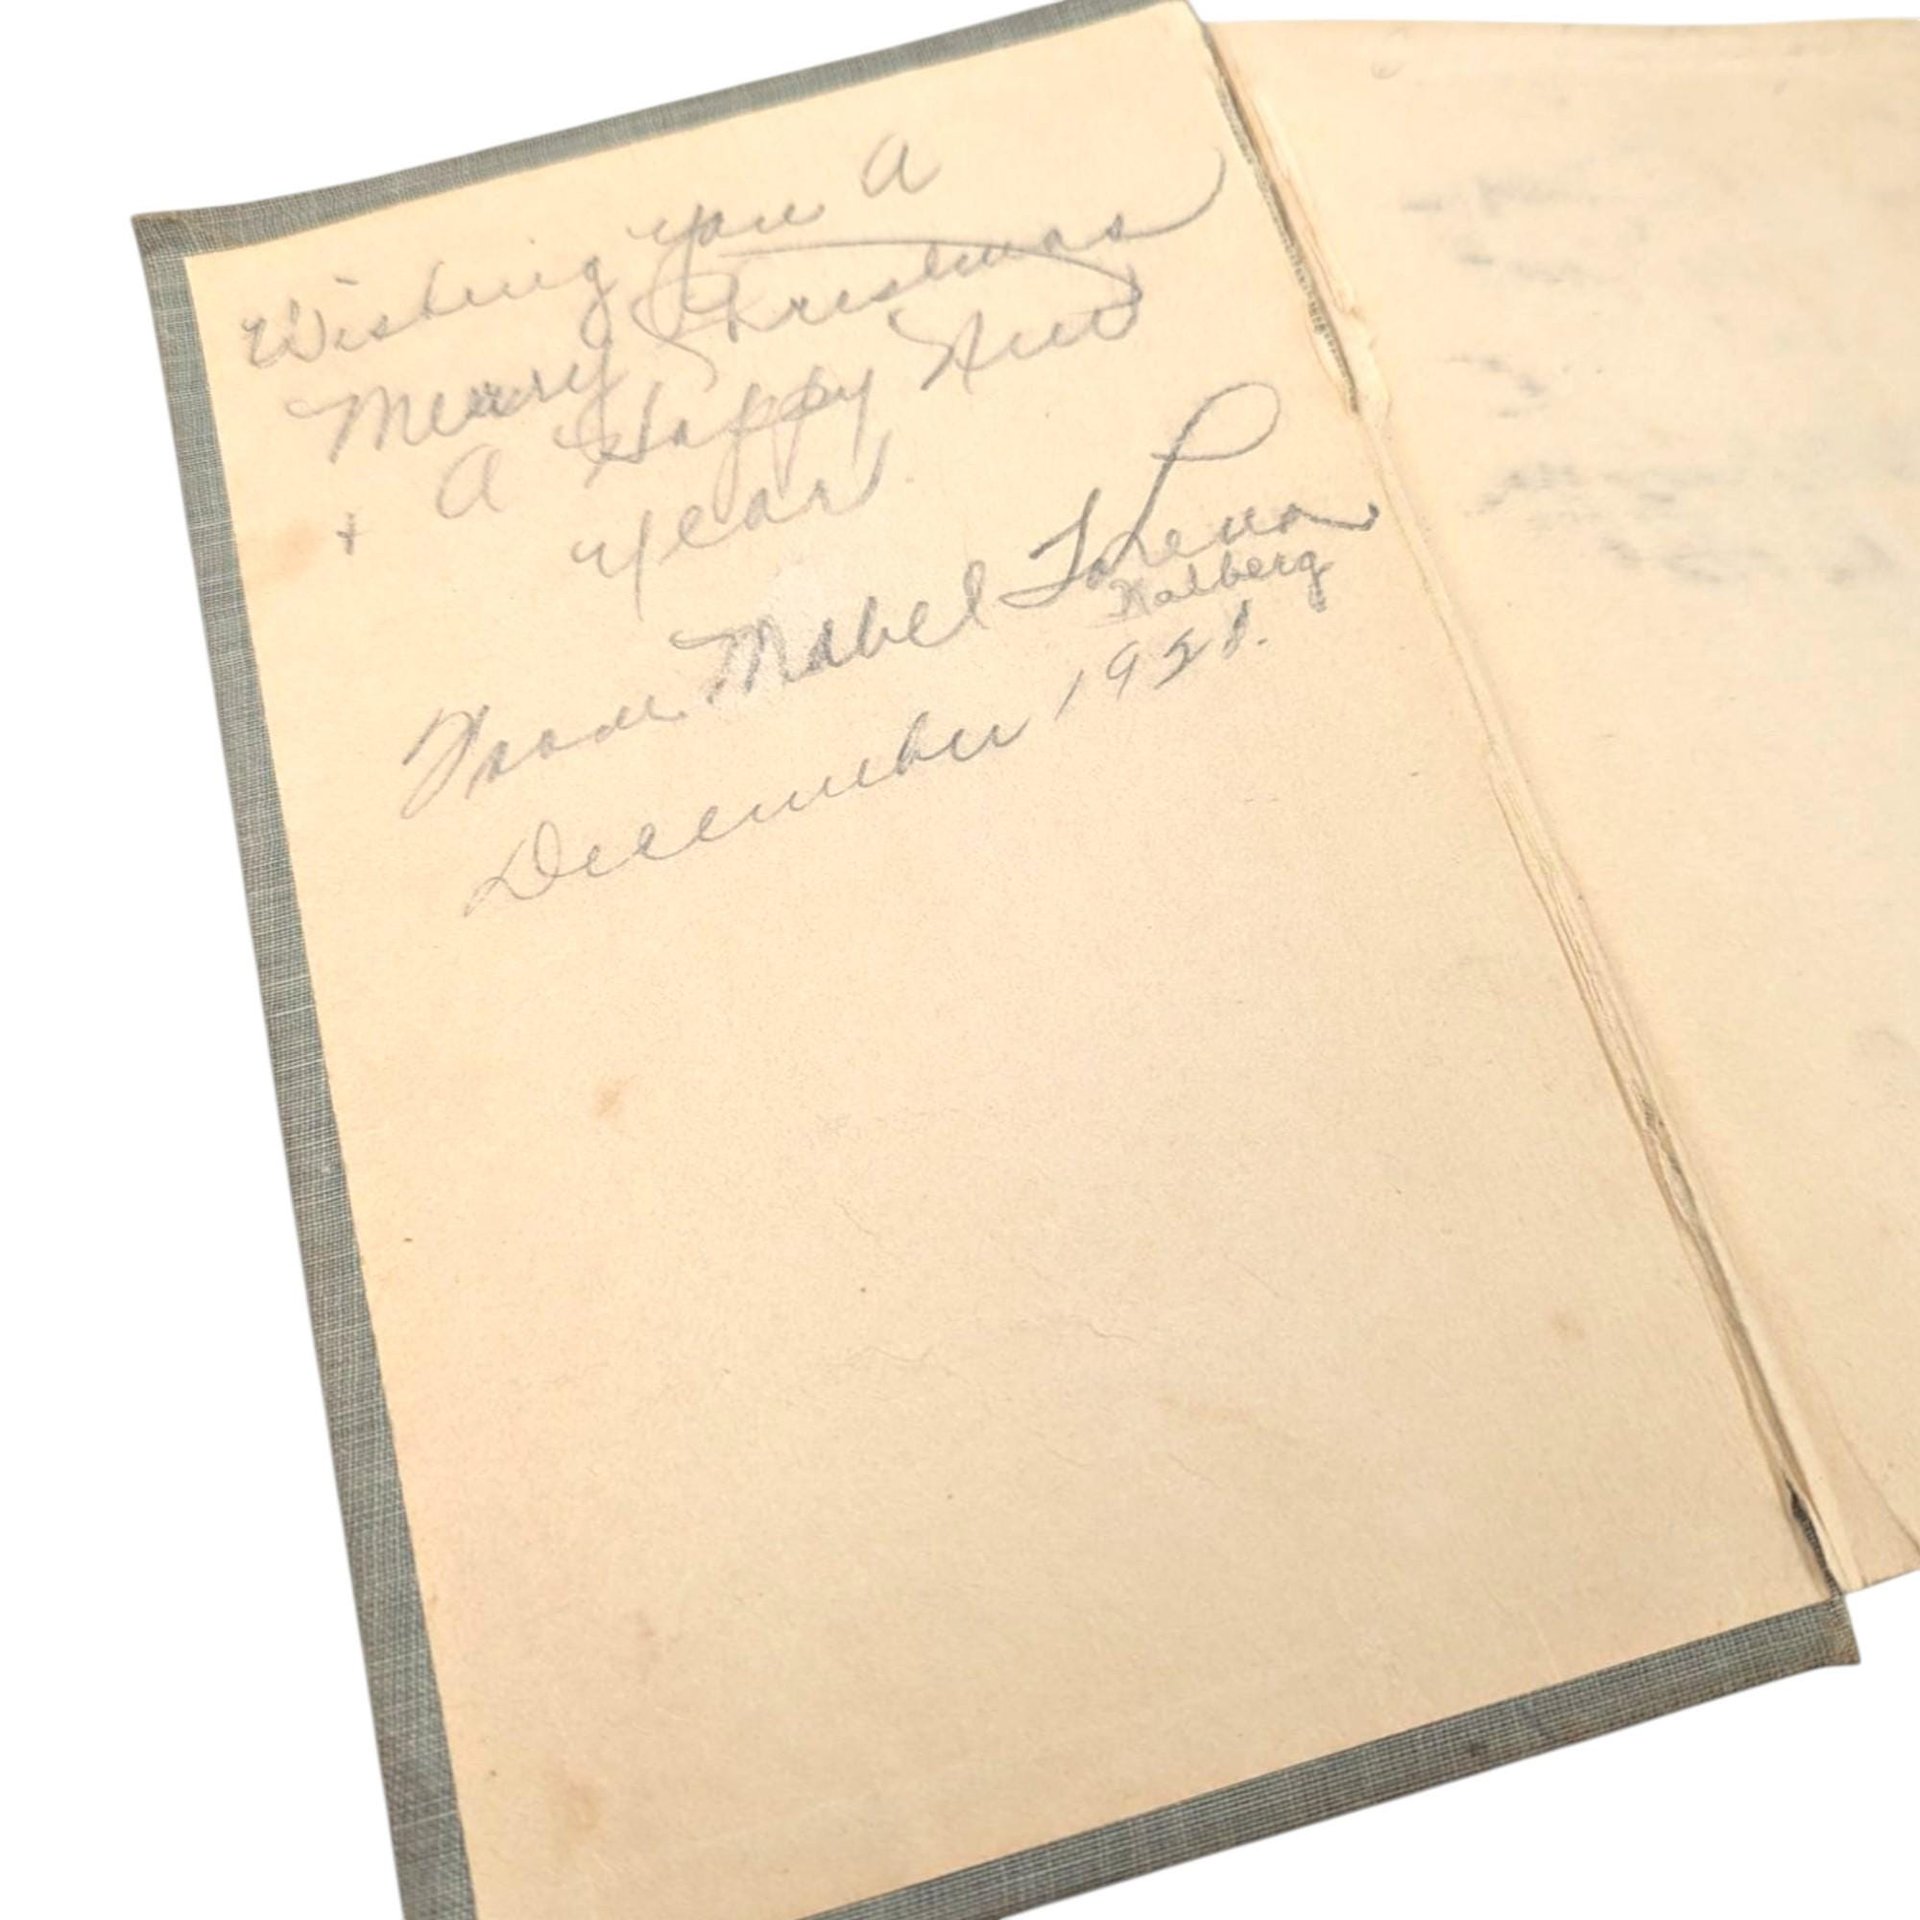 Wishing you a
Merry Christmas
+ a Happy New
Year
From Mabel Lorena
December 1921.